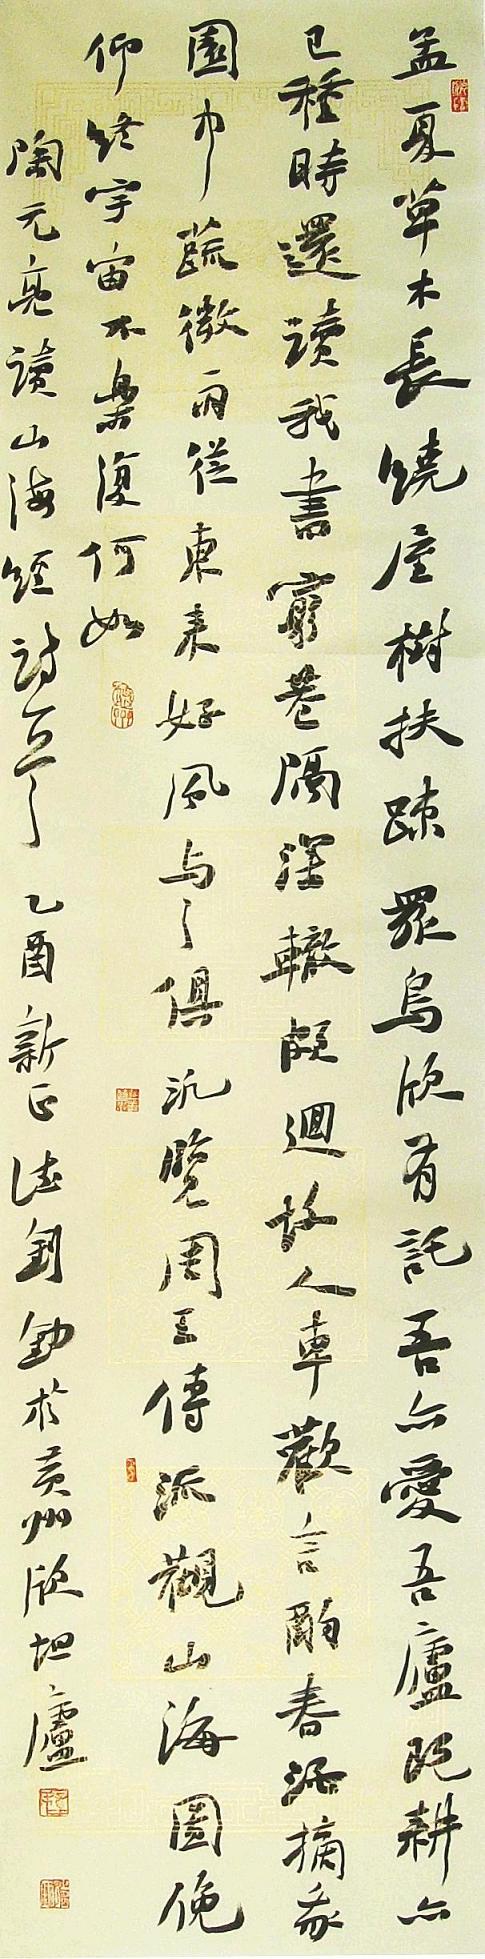 孟夏草木長繞屋樹扶疎眾鳥欣有託吾亦愛吾廬既耕亦
已種時還讀我書窮巷隔深轍頗迴故人車歡言酌春酒摘我
園中蔬微雨從東來好風与之俱汎覽周王傳流觀山海圖俛
仰終宇宙不樂復何如
陶元亮讀山海經詩 乙酉新正 於黃州欣坦廬